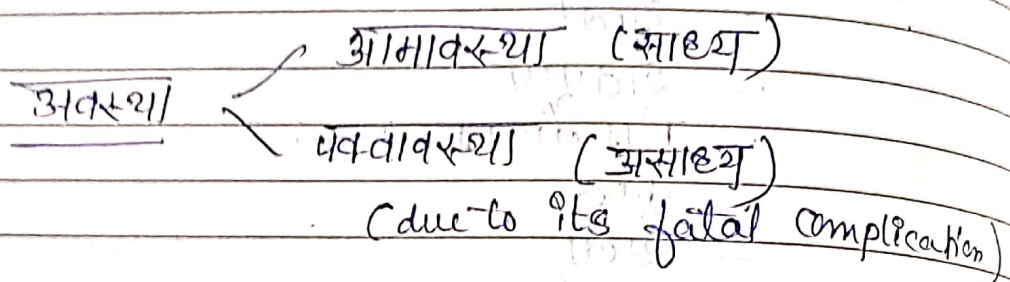 आमावस्था (साध्य)
अवस्था
पक्वावस्था (असाध्य)
(due to its fatal complication)